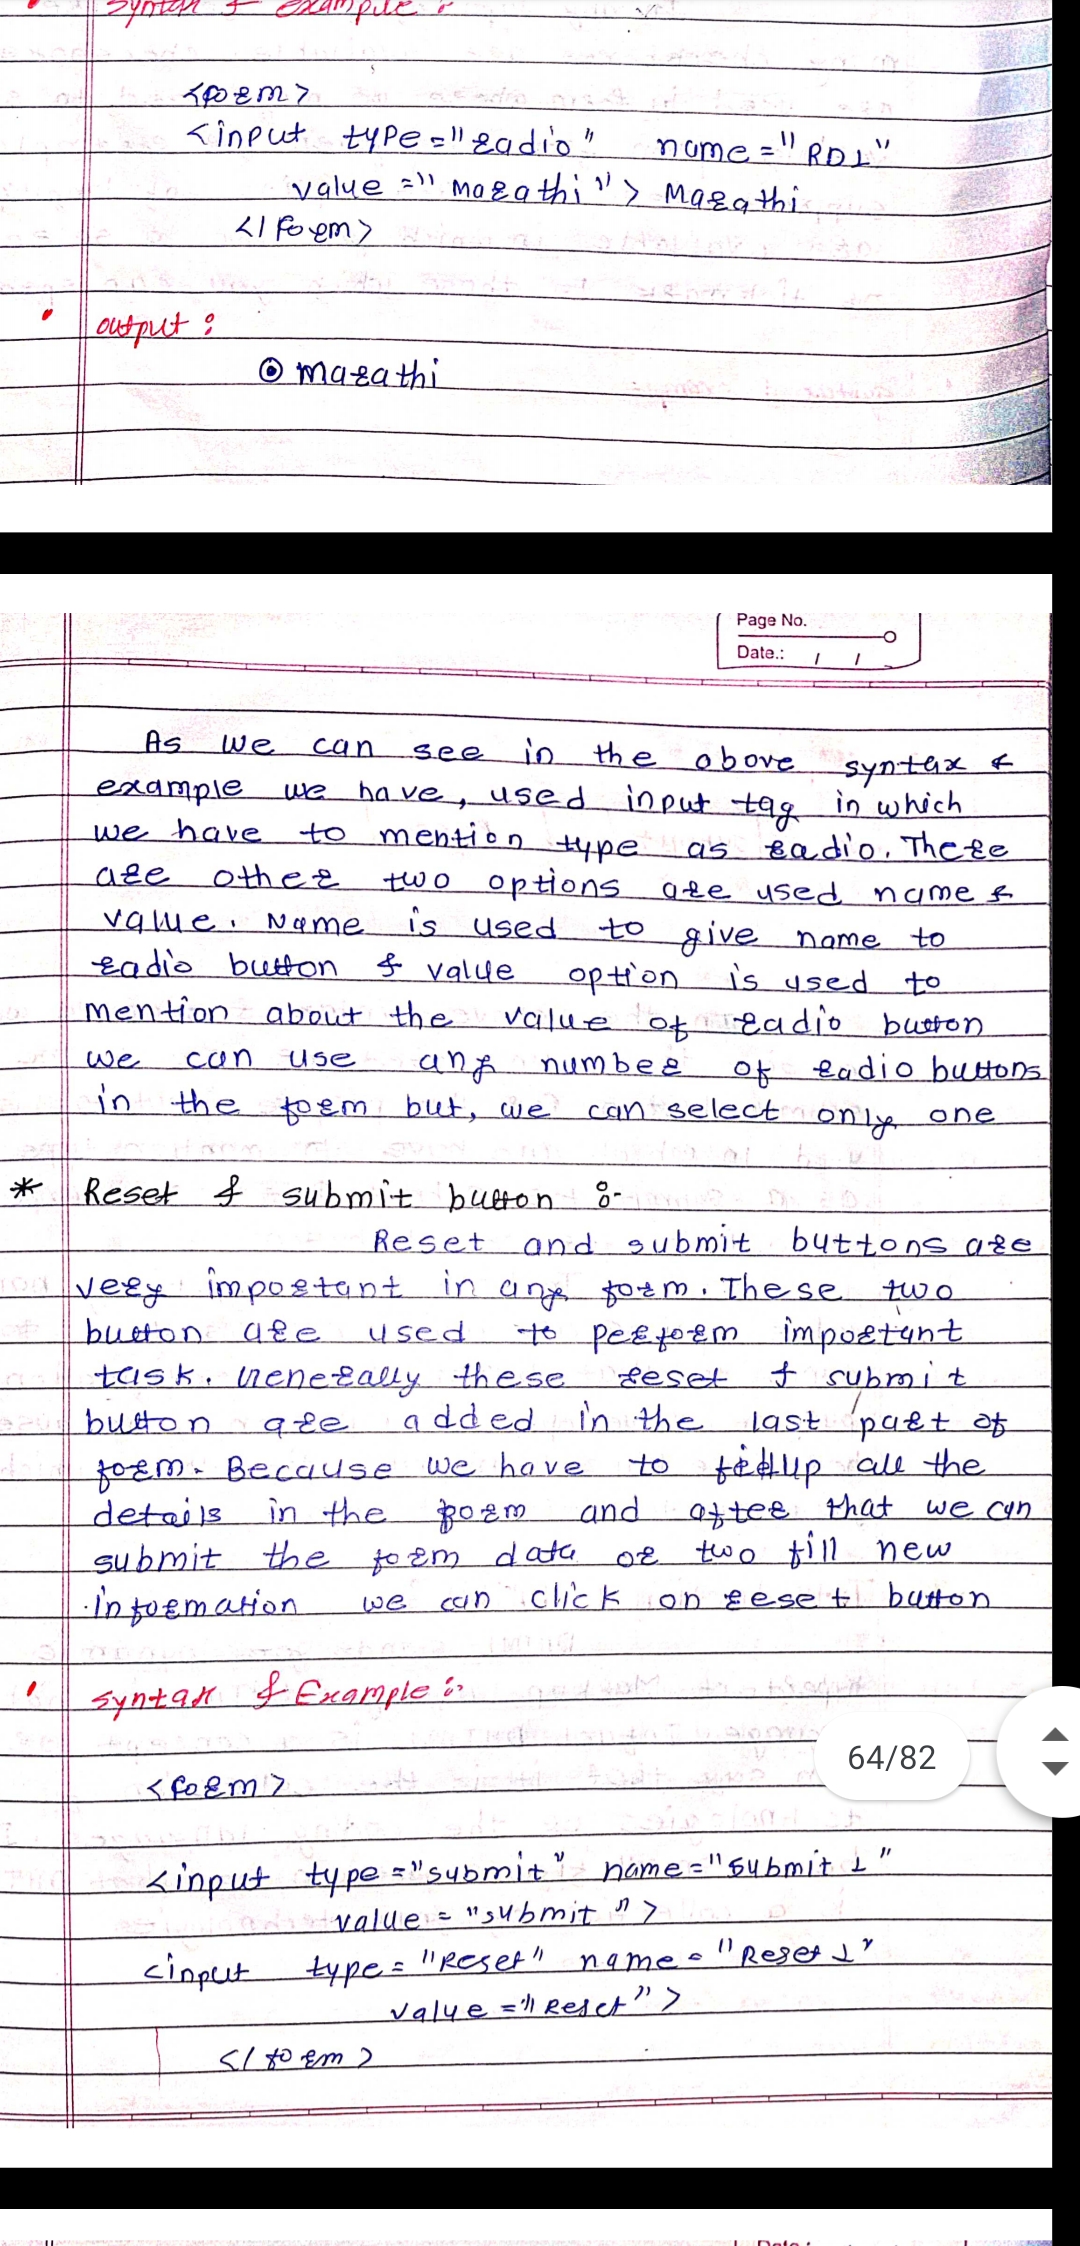 Syntax & Example :
<form>
<input type="radio" name="RD1"
value="Marathi"> Marathi
</form>
output :
⦿ marathi
Page No.
Date.: / /
As we can see in the above syntax &
example we have, used input tag in which
we have to mention type as radio. There
are other two options are used name &
value. Name is used to give name to
radio button & value option is used to
mention about the value of radio button
we can use any number of radio buttons
in the form but, we can select only one
* Reset & submit button :-
Reset and submit buttons are
very important in any form. These two
button are used to perform important
task. Generally these reset & submit
button are added in the last part of
form. Because we have to fillup all the
details in the form and after that we can
submit the form data or two fill new
information we can click on reset button
Syntax & Example :-
64/82
<form>
<input type="submit" name="submit 1"
value = "submit">
<input type = "Reset" name = "Reset 1"
value = "Reset">
</form>